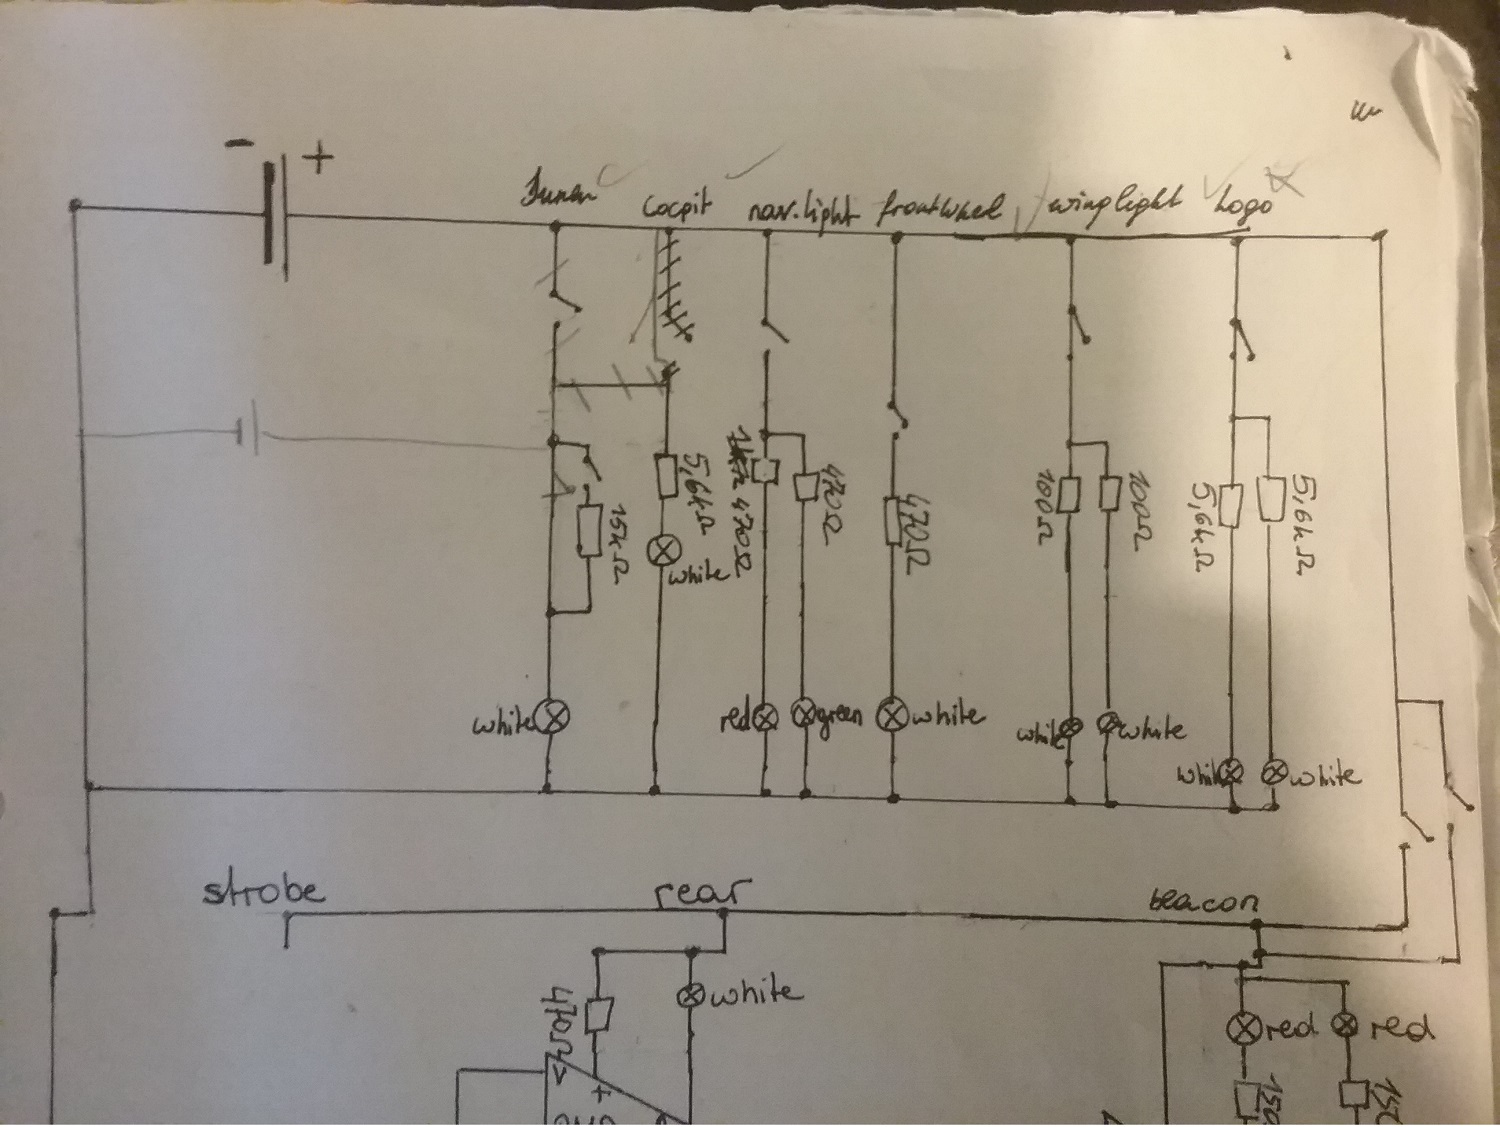 - +
cocpit nav.light frontwheel winglight Logo
15kΩ 5,6kΩ 470Ω 470Ω 470Ω 100Ω 100Ω 5,6kΩ 5,6kΩ
white
white red green white white white white white
strobe rear beacon
470Ω white red red
+